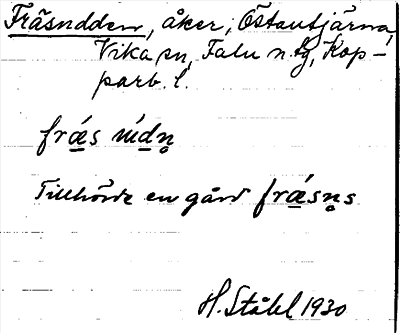 Fräsudden, åker; Östantjärna,
Vika sn, Falu n. tg, Kop-
parb. l.
frǽs úidn̥
Tillhörde en gård frǽsn̥s
H. Ståhl 1930